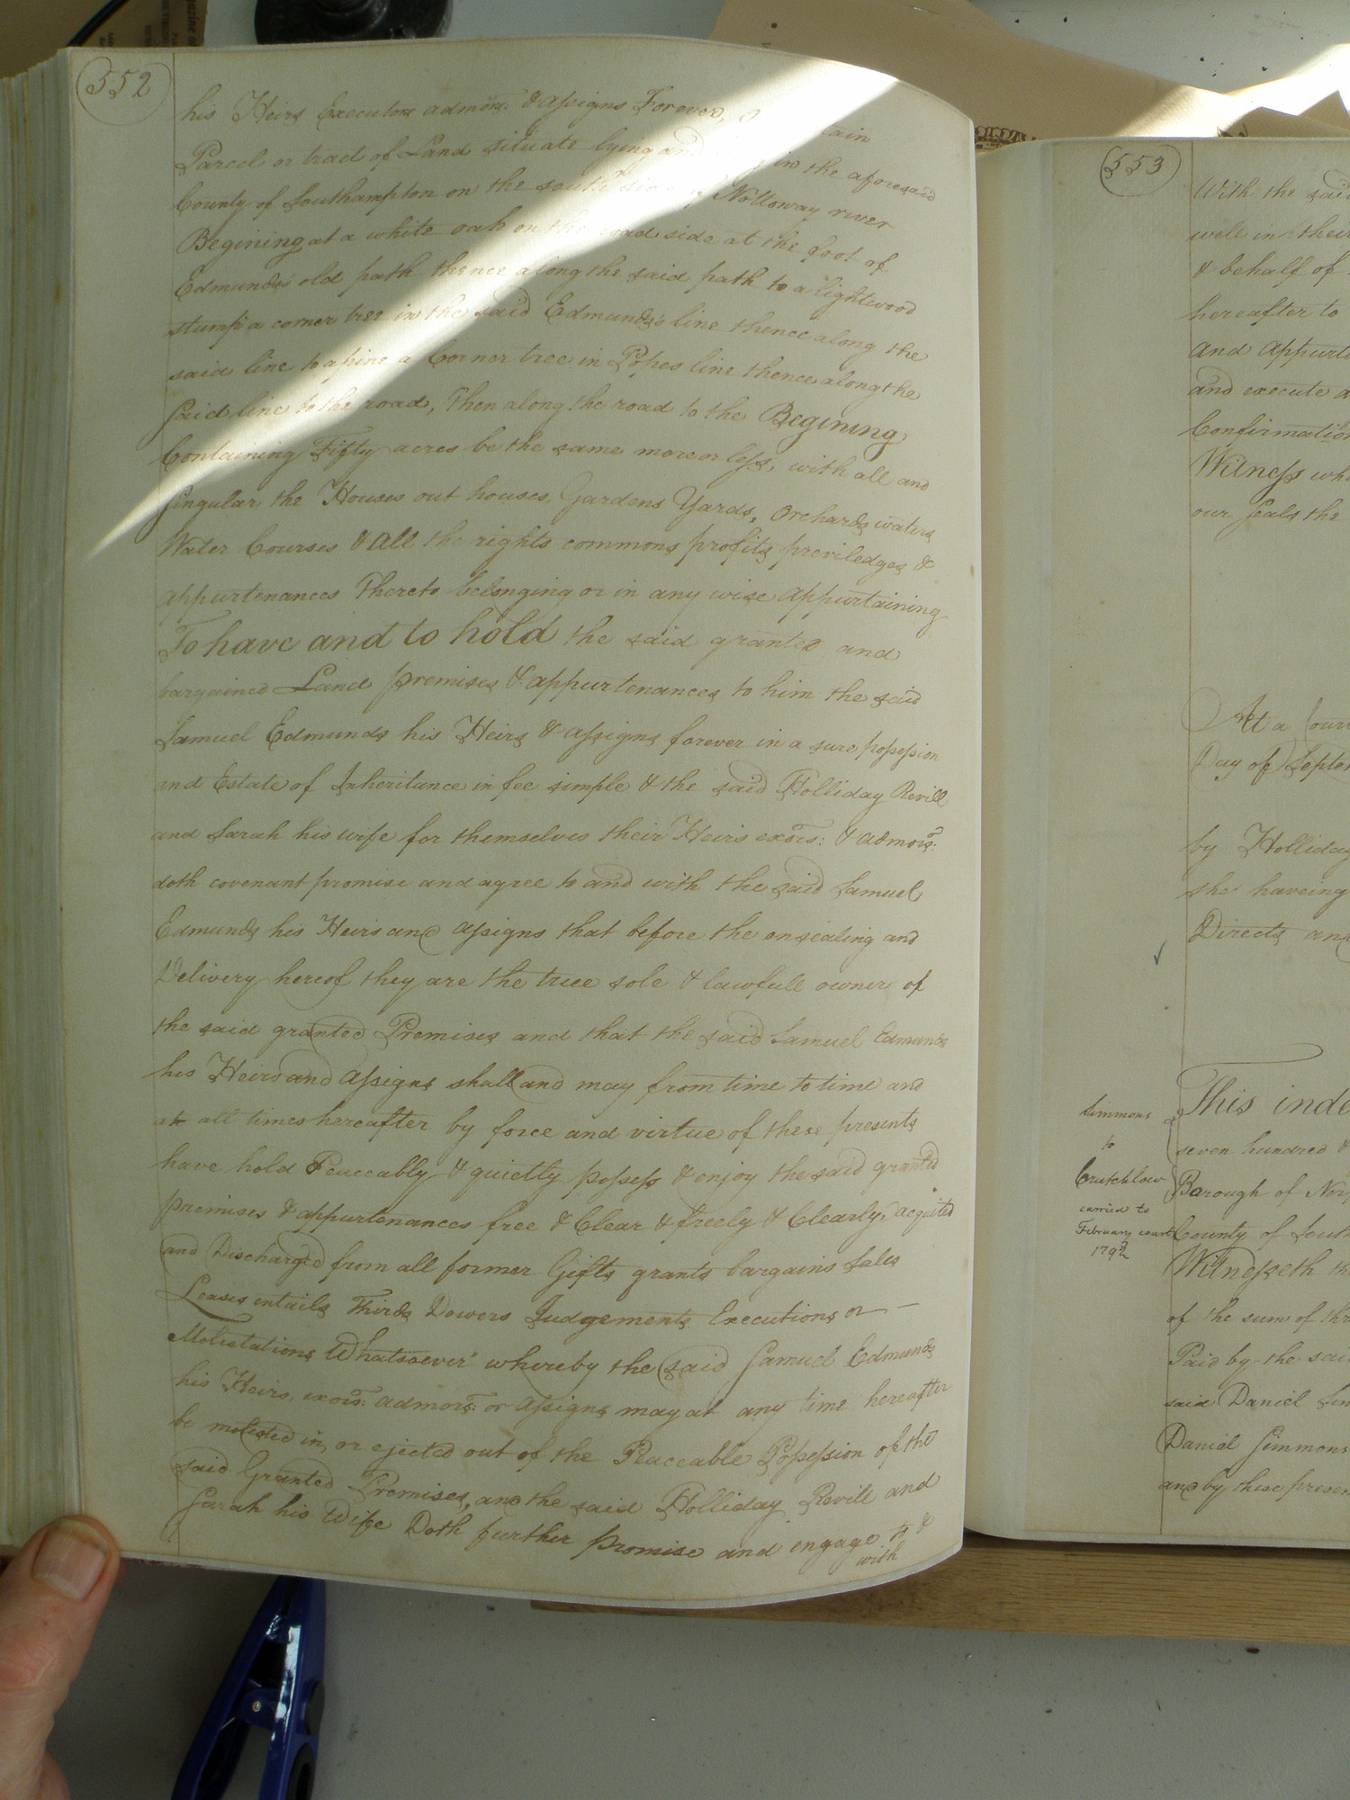 552
his Heirs Executors admors: & assigns Forever, a tain
Parcel or tract of Land situate lying and in the aforesaid
County of Southampton on the south side of Nottoway river
Begining at a white oak on the road side at the foot of
Edmunds's old path thence along the said path to a lightwood
stump a corner tree in the said Edmunds's line thence along the
said line to a pine a Corner tree in Popes line thence along the
said line to the road, Then along the road to the Begining
Containing Fifty acres be the same more or less, with all and
singular the Houses out houses, Gardens Yards, Orchards waters
Water Courses & all the rights commons profits previledges &
appurtenances Thereto belonging or in any wise appurtaining
To have and to hold the said granted and
bargained Land premises & appurtenances to him the said
Samuel Edmunds his Heirs & assigns forever in a sure possession
and Estate of Inheritance in fee simple & the said Holliday Revill
and Sarah his wife for themselves their Heirs exors: & admors:
doth covenant promise and agree to and with the said Samuel
Edmunds his Heirs and assigns that before the ensealing and
Delivery hereof they are the true sole & lawfull owner of
the said granted Premises and that the said Samuel Edmunds
his Heirs and assigns shall and may from time to time and
at all times hereafter by force and virtue of these presents
have hold Peaceably & quietly possess & enjoy the said granted
premises & appurtenances free & Clear & freely & Clearly, acquited
and Discharged from all former Gifts grants bargains Sales
Leases entails Thirds Dowers Judgements Executions or —
Molistations Whatsoever whereby the said Samuel Edmunds
his Heirs, exors: admors: or assigns may at any time hereafter
be molisted in, or ejected out of the Peaceable Possession of the
said Granted Premises, and the said Holliday Revill and
Sarah his Wife Doth further promise and engage to &
with
553
With the said
well in their
& behalf of
hereafter to
and appurt
and execute a
Confirmation
Witness wh
our Seals the
At a Cour
Day of Septem
by Holliday
she haveing
Directs and
Simmons
to
Crutchlow
carried to
February court
179
This inde
seven hundred &
Borough of Nor
County of South
Witnesseth th
of the sum of th
Paid by the said
said Daniel Sim
Daniel Simmons
and by these presen